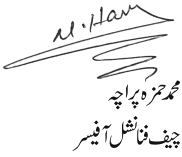 M. Ham
محمد حمزہ پراچہ
چیف فنانشل آفیسر